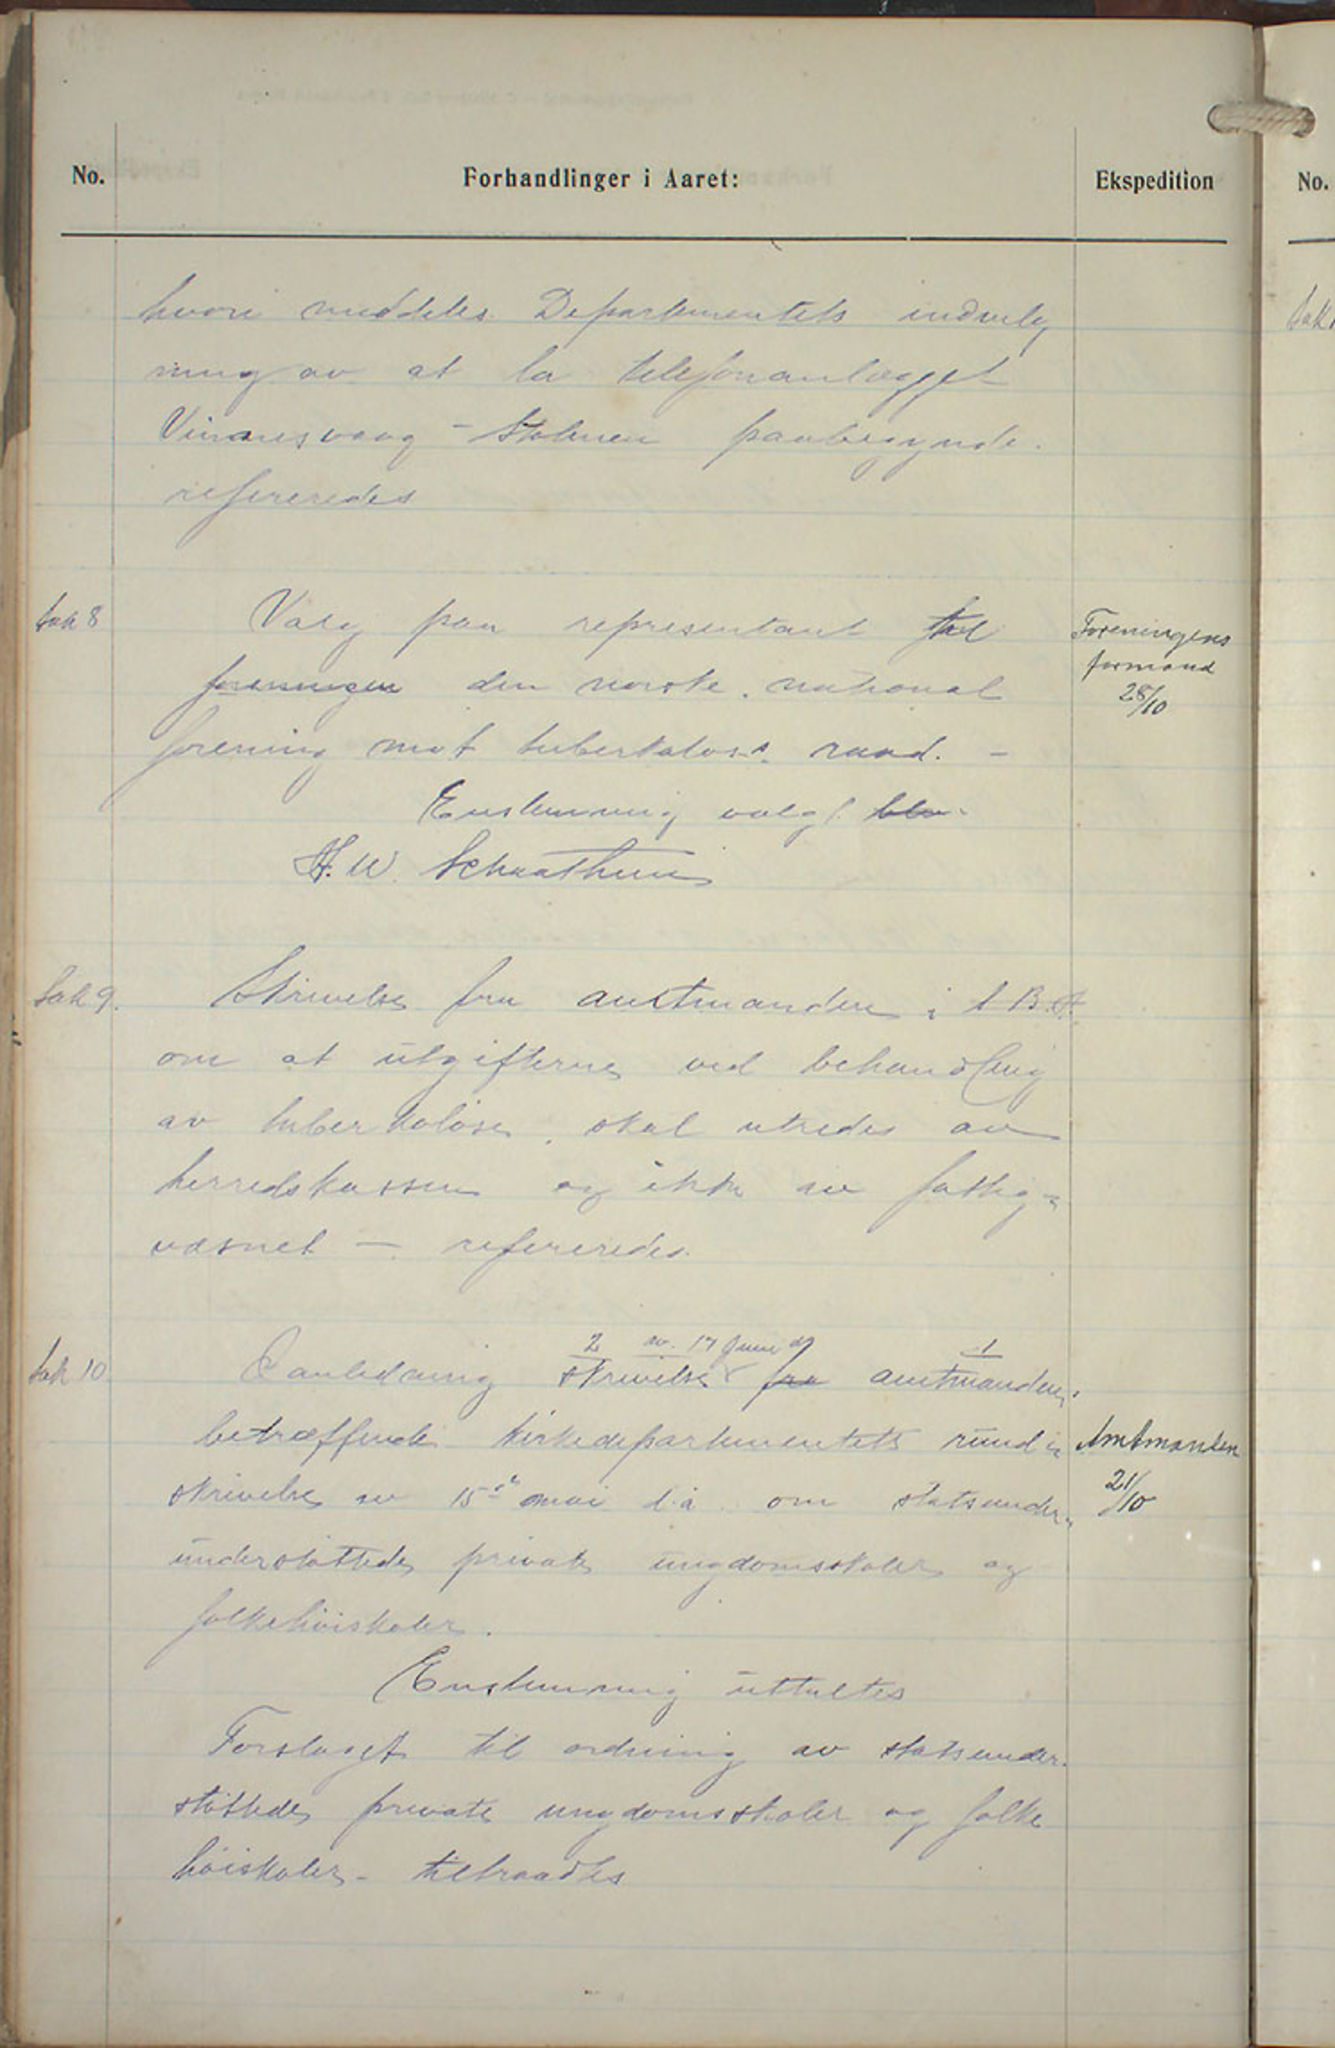 No. Forhandlinger i Aaret: Ekspedition No.
hvori meddeles Departementets indvilg
ning av at la telefonanlægget
Vinnesvaag - Stolmen paabegynde.
refereredes
Sak 8 Valg paa representant til
foreningen den norske national
forening mot tuberkulose raad. -
Enstemmig valgt blev
H. W. Schaathun
Foreningens
formand
28/10
Sak 9. Skrivelse fra amtmanden i S. B. A.
om at utgifterne ved behandling
av tuberkuløse, skal utredes av
herredskassen og ikke av fattig-
væsnet - refereredes.
2 av 17 juni d/ 1
Sak 10 I anledning skrivelse fra amtmanden.
betræffende kirkedepartementets rund-
skrivelse av 15de mai d.a. om statsunder-
understøttede private ungdomsskoler og
folkehøiskoler.
Amtmanden
21/10
Enstemmig uttaltes
Forslaget til ordning av statsunder-
støttede private ungdomsskoler og folke
høiskoler - tiltraadtes
Sak